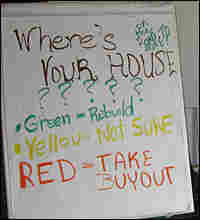 Where's
Your HOUSE
? ? ? ? ?
• Green = Rebuild
• Yellow - Not SURE
RED = TAKE
BUYOUT